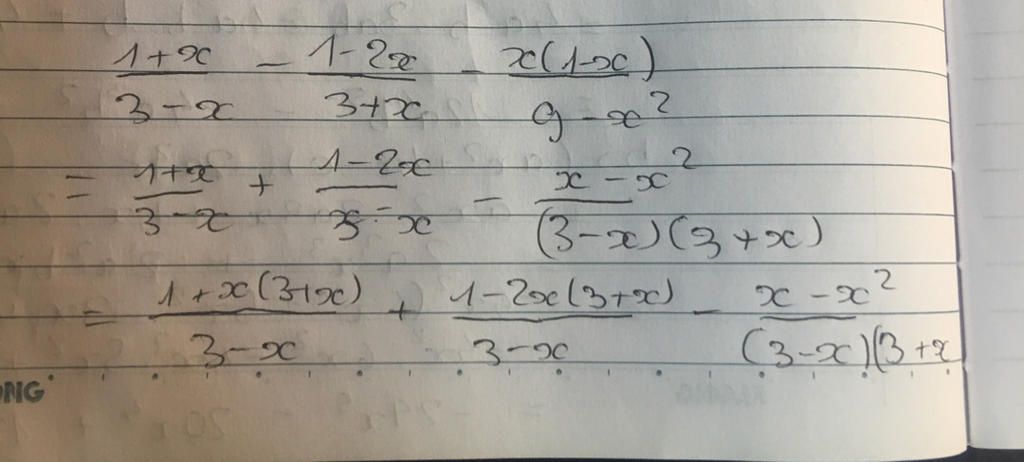 \frac{1+x}{3-x} - \frac{1-2x}{3+x} - \frac{x(1-x)}{9-x^2}
= \frac{1+x}{3-x} + \frac{1-2x}{3-x} - \frac{x-x^2}{(3-x)(3+x)}
= \frac{1+x(3+x)}{3-x} + \frac{1-2x(3+x)}{3-x} - \frac{x-x^2}{(3-x)(3+x}